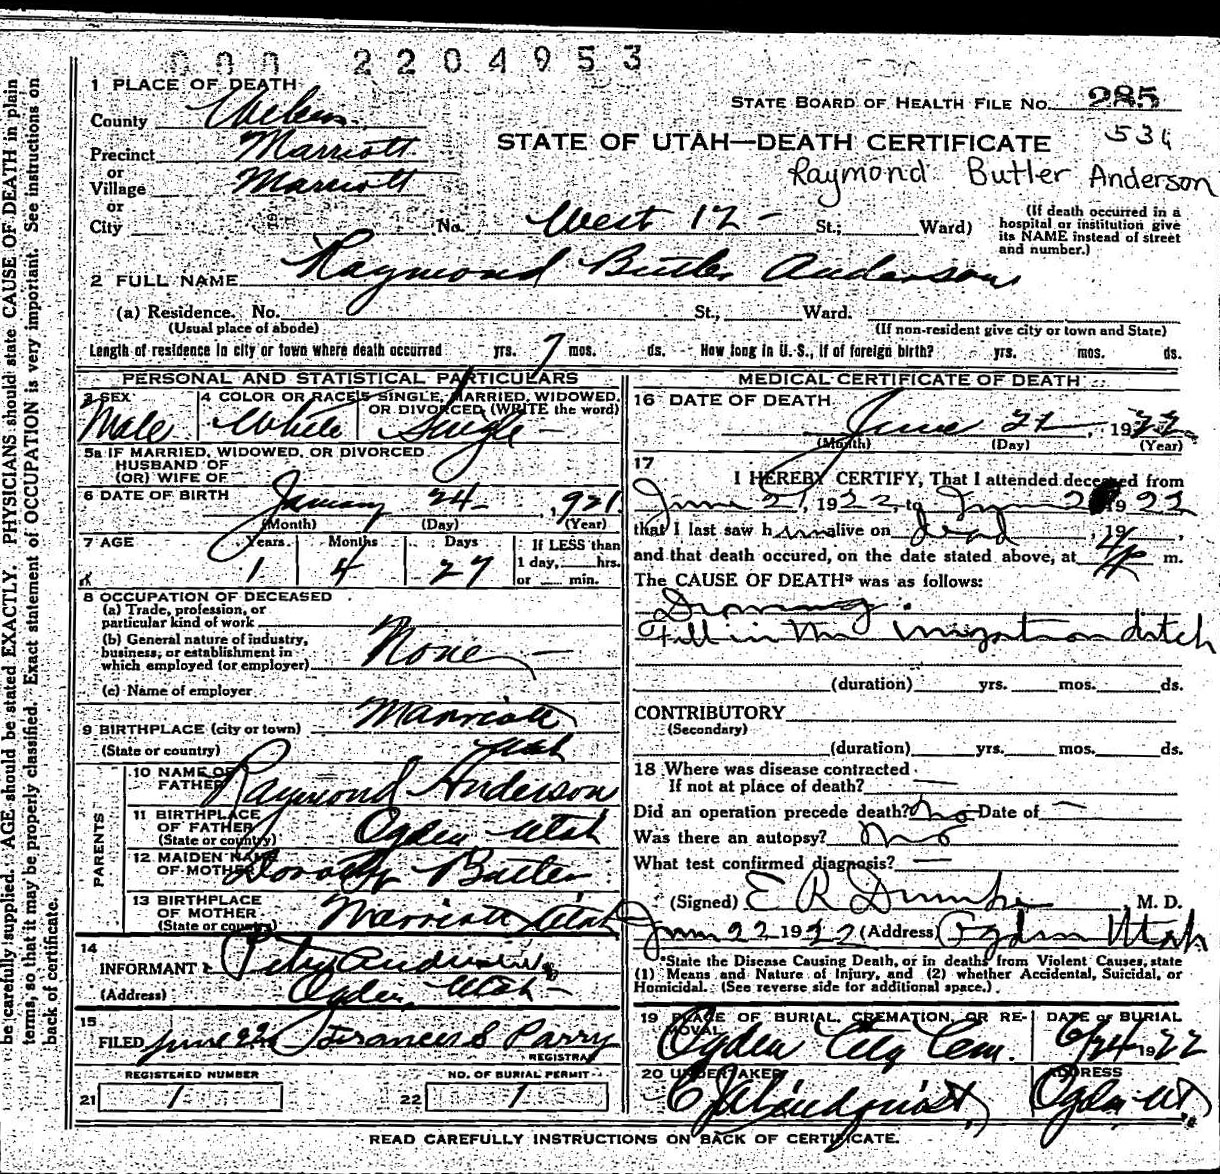 000 2204953
1 PLACE OF DEATH
STATE BOARD OF HEALTH FILE No. 285
County Weber
536
Precinct Marriott
STATE OF UTAH—DEATH CERTIFICATE
or
Village Marriott
Raymond Butler Anderson
or
City No. West 12 - St.; Ward)
(If death occurred in a
hospital or institution give
its NAME instead of street
and number.)
2 FULL NAME Raymond Butler Anderson
(a) Residence. No. St., Ward.
(Usual place of abode) (If non-resident give city or town and State)
Length of residence in city or town where death occurred yrs. 7 mos. ds. How long in U.S., if of foreign birth? yrs. mos. ds.
PERSONAL AND STATISTICAL PARTICULARS
3 SEX 4 COLOR OR RACE 5 SINGLE, MARRIED, WIDOWED,
OR DIVORCED (WRITE the word)
Male White Single -
5a IF MARRIED, WIDOWED, OR DIVORCED
HUSBAND OF
(OR) WIFE OF
6 DATE OF BIRTH January 24 - , 1921
(Month) (Day) (Year)
7 AGE Years Months Days If LESS than
1 day, hrs.
1 4 27 or min.
8 OCCUPATION OF DECEASED
(a) Trade, profession, or
particular kind of work
(b) General nature of industry,
business, or establishment in
which employed (or employer) None -
(c) Name of employer
9 BIRTHPLACE (city or town) Marriott
(State or country) Utah
PARENTS
10 NAME OF
FATHER Raymond Anderson
11 BIRTHPLACE
OF FATHER Ogden Utah
(State or country)
12 MAIDEN NAME
OF MOTHER Dorothy Butler
13 BIRTHPLACE
OF MOTHER Marriott Utah
(State or country)
14
INFORMANT Peter Anderson
(Address) Ogden, Utah -
15
FILED June 22 Frances S Parry
REGISTRAR
REGISTERED NUMBER NO. OF BURIAL PERMIT
21 1 22 1
MEDICAL CERTIFICATE OF DEATH
16 DATE OF DEATH
June 21, 1922
(Month) (Day) (Year)
17
I HEREBY CERTIFY, That I attended deceased from
June 21, 1922, to June 21 1922
that I last saw him alive on dead, 19 ,
and that death occured, on the date stated above, at 4 P m.
The CAUSE OF DEATH* was as follows:
Drowning.
Fell in the irrigation ditch
(duration) yrs. mos. ds.
CONTRIBUTORY
(Secondary)
(duration) yrs. mos. ds.
18 Where was disease contracted
If not at place of death? —
Did an operation precede death? No Date of —
Was there an autopsy? No
What test confirmed diagnosis? —
(Signed) E R Dumke, M. D.
June 22 1922 (Address) Ogden Utah
*State the Disease Causing Death, or in deaths from Violent Causes, state
(1) Means and Nature of Injury, and (2) whether Accidental, Suicidal, or
Homicidal. (See reverse side for additional space.)
19 PLACE OF BURIAL, CREMATION, OR RE- DATE OF BURIAL
MOVAL
Ogden City Cem. 6/24 1922
20 UNDERTAKER ADDRESS
C J A Lindquist Ogden Ut
READ CAREFULLY INSTRUCTIONS ON BACK OF CERTIFICATE.
be carefully supplied. AGE should be stated EXACTLY. PHYSICIANS should state CAUSE OF DEATH in plain
terms, so that it may be properly classified. Exact statement of OCCUPATION is very important. See instructions on
back of certificate.